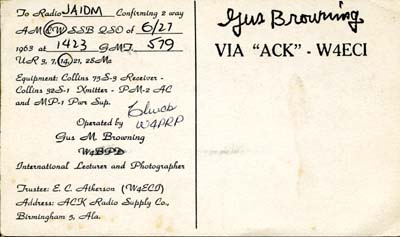 To Radio JA1DM Confirming 2 way
AM CW SSB QSO of 6/27
1963 at 1423 GMT. 579
UR 3, 7, 14, 21, 28Mc
Equipment: Collins 75S-3 Receiver -
Collins 32S-1 Xmitter - PM-2 AC
and MP-1 Pwr Sup.
Operated by
W4PRP
Gus M. Browning
W4BPD
International Lecturer and Photographer
Trustee: E. C. Atkerson (W4ECI)
Address: ACK Radio Supply Co.,
Birmingham 5, Ala.
Gus Browning
VIA "ACK" - W4ECI